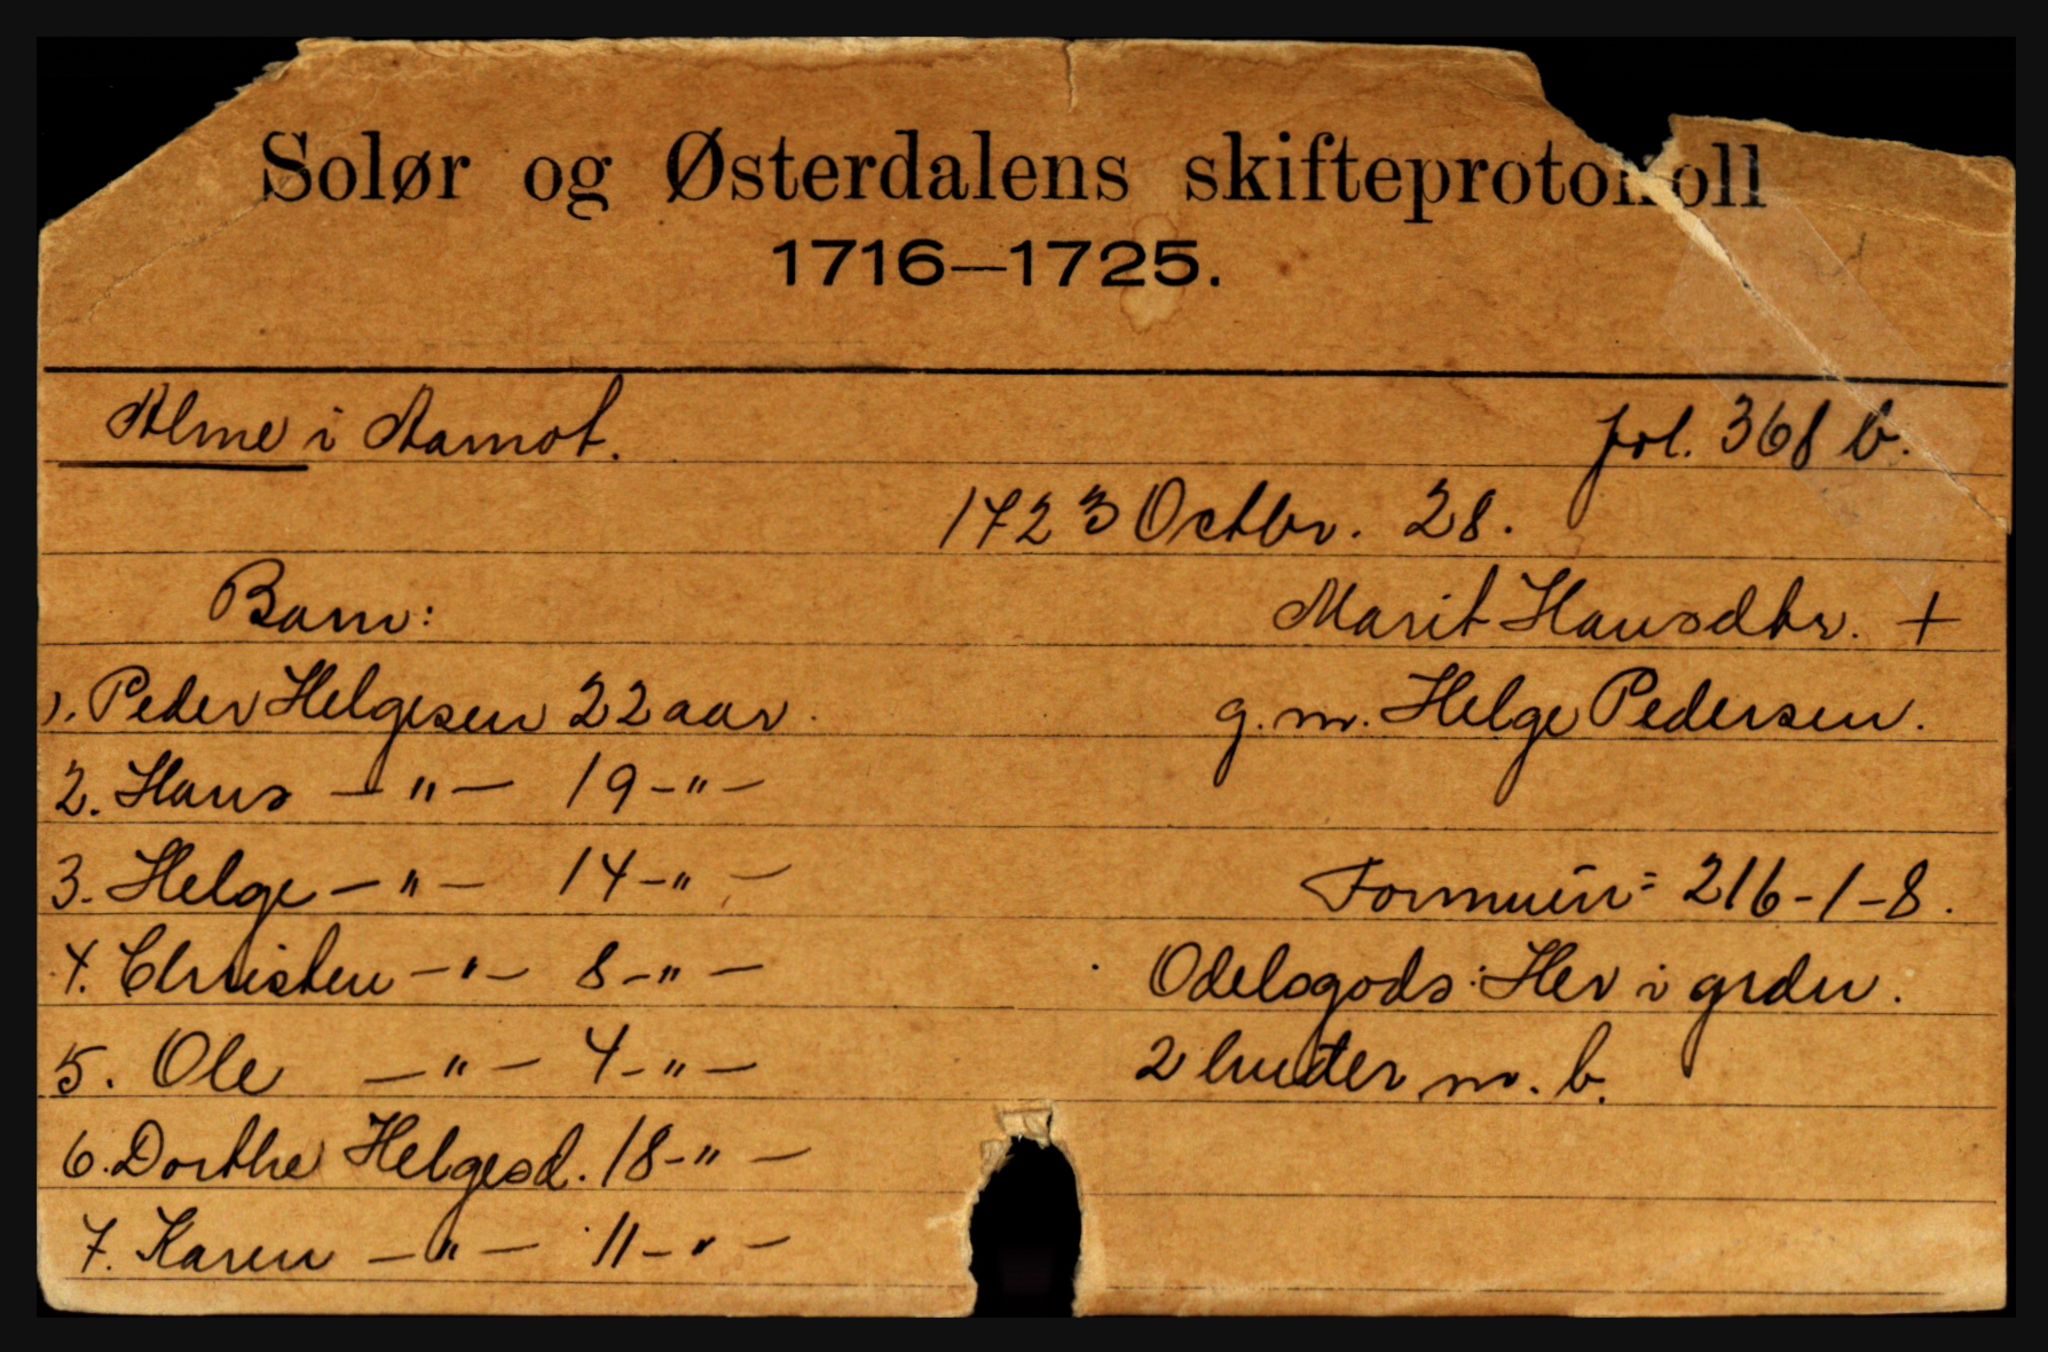 Solør og Østerdalens skifteprotokoll
1716—1725.
Alme i Aamot. fol. 368 b.
1723 Octbr. 28.
Barn: Marit Hansdtr. +
1. Peder Helgesen 22 aar. g. m. Helge Pedersen.
2. Hans — " — 19 — " —
3. Helge — " — 14 — " — Formue: 216-1-8.
4. Christen — " — 8 — " — Odelsgods: Her i grden.
5. Ole — " — 4 — " — 2 huder m. b.
6. Dorthe Helgesd. 18 — " —
7. Karen — " — 11 — " —